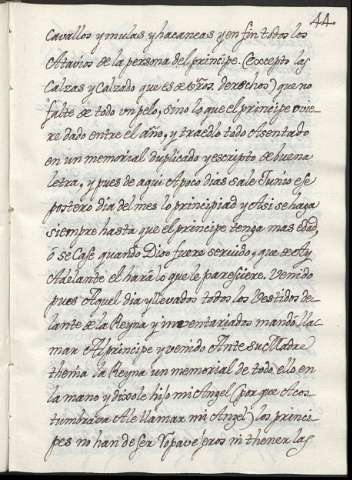 44.
cavallos y mulas y hacaneas y en fin todos los
Atavios de la persona del principe. (excepto las
Calzas y Calzado que es de vros derechos) que no
falte de todo un pelo, sino lo que el principe ovie-
re dado entre el año, y traedlo todo Asentado
en un memorial duplicado y escripto de buena
letra, y pues de aqui A poco dias sale Junio ese
postero dia del mes lo principiad y Asi se haga
siempre hasta que el principe tenga mas edad,
ó se Case quando Dios fuere servido, que de Ay
Adelante el hara lo que le paresciere. Venido
pues Aquel dia y llevados todos los Vestidos de-
lante de la Reyna y inventariados mandó lla-
mar Al principe y venido Ante su Madre
thenia la Reyna un memorial de todo ello en
la mano y dixole hijo mi Angel (por que Acos-
tumbrava A le llamar mi Angel) los princi-
pes no han de ser Ropavejeros ni thener las